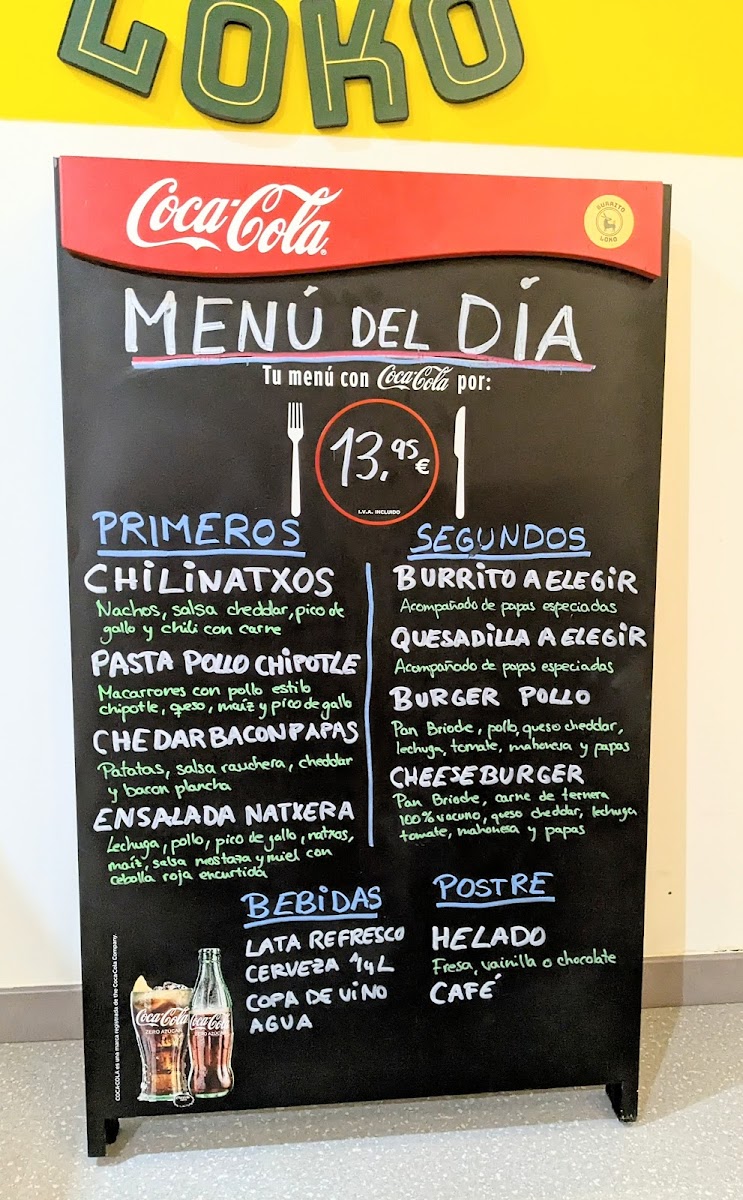 LOKO
Coca-Cola
BURRITO
LOKO
MENÚ DEL DÍA
Tu menú con Coca-Cola por:
13,95 €
I.V.A. INCLUIDO
PRIMEROS
CHILINATXOS
Nachos, salsa cheddar, pico de
gallo y chili con carne
PASTA POLLO CHIPOTLE
Macarrones con pollo estilo
chipotle, queso, maíz y pico de gallo
CHEDARBACONPAPAS
Patatas, salsa ranchera, cheddar
y bacon plancha
ENSALADA NATXERA
Lechuga, pollo, pico de gallo, natxos,
maíz, salsa mostaza y miel con
cebolla roja encurtida
SEGUNDOS
BURRITO A ELEGIR
Acompañado de papas especiadas
QUESADILLA A ELEGIR
Acompañado de papas especiadas
BURGER POLLO
Pan Brioche, pollo, queso cheddar,
lechuga, tomate, mahonesa y papas
CHEESEBURGER
Pan Brioche, carne de ternera
100% vacuno, queso cheddar, lechuga
tomate, mahonesa y papas
BEBIDAS
LATA REFRESCO
CERVEZA 1/4 L
COPA DE VINO
AGUA
POSTRE
HELADO
Fresa, vainilla o chocolate
CAFÉ
COCA-COLA es una marca registrada de the Coca-Cola Company.
Coca-Cola
ZERO AZÚCAR
Coca-Cola
ZERO AZÚCAR